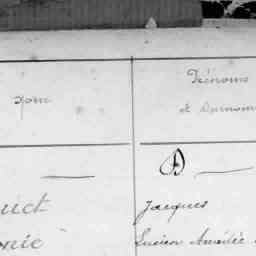 Nom
Prénoms
et Surnoms
D
Jacques
Lucien Amédée